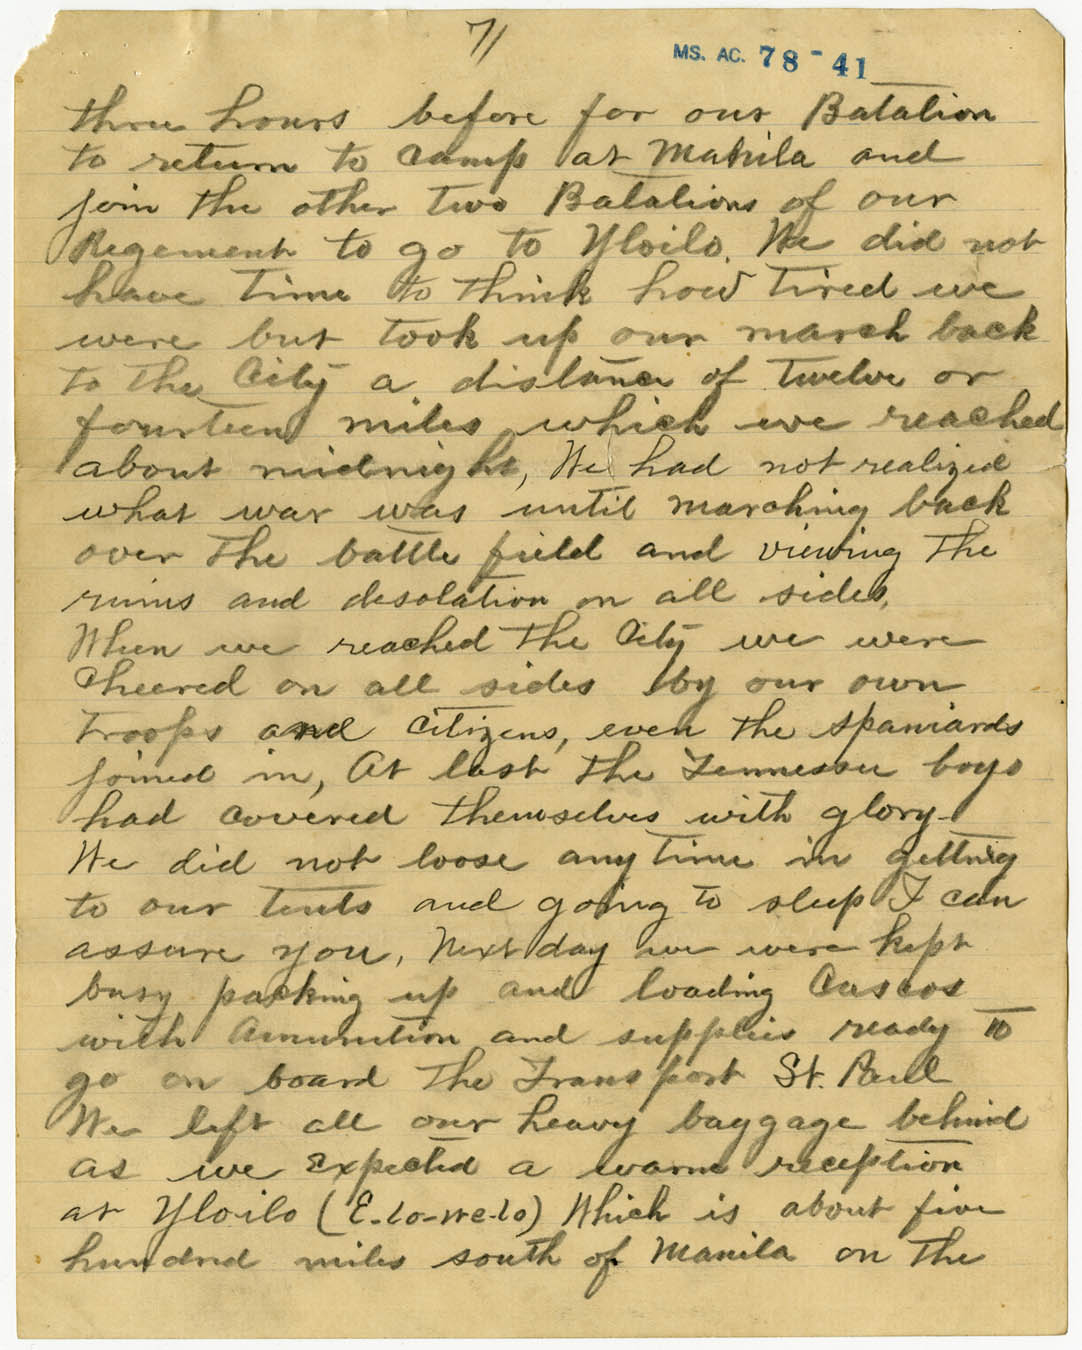 71
MS. AC. 78-41
three hours before for our Batalion
to return to Camp at Manila and
join the other two Batalions of our
Regement to go to Yloilo. We did not
have time to think how tired we
were but took up our march back
to the City a distance of twelve or
fourteen miles which we reached
about midnight, We had not realized
what war was until marching back
over the battle field and viewing the
ruins and desolation on all sides,
When we reached the City we were
Cheered on all sides by our own
troops and Citizens, even the spaniards
joined in, At last the Tennessee boys
had covered themselves with glory.
We did not loose any time in getting
to our tents and going to sleep I can
assure you, Next day we were kept
busy packing up and loading Cascos
with Amunution and supplies ready to
go on board the Transport St. Paul
We left all our heavy baggage behind
as we Expected a warm reception
at Yloilo (E-lo-we-lo) Which is about five
hundred miles south of Manila on the